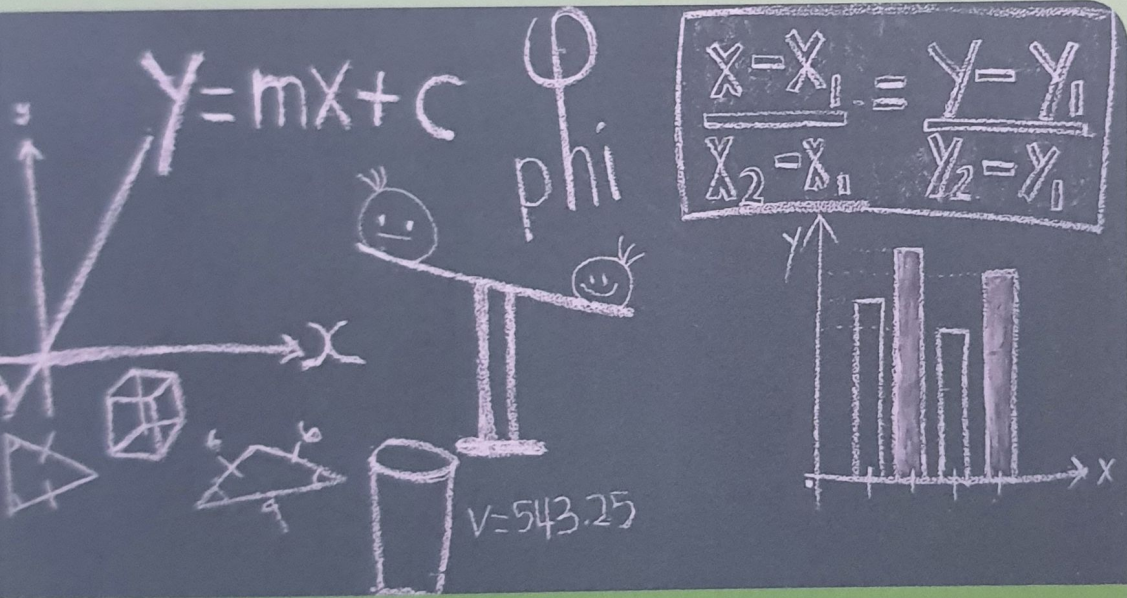 y
y=mx+c
φ
phi
x-x₁ / x₂-x₁ = y-y₁ / y₂-y₁
y
x
x
6
9
v=543.25